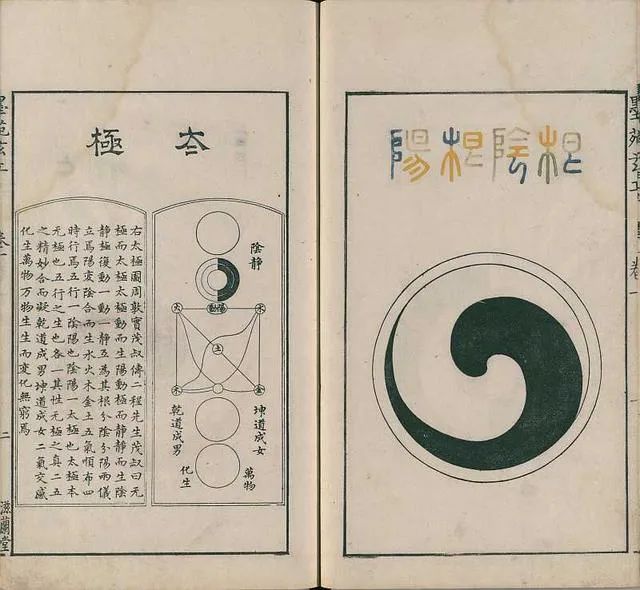 根陰根陽
夳極
陰靜
陽動
火
水
土
木
金
坤道成女
乾道成男
萬物
化生
右太極圖周敦實茂叔傳二程先生茂叔曰无
極而太極太極動而生陽動極而靜靜而生陰
靜極復動一動一靜互爲其根分陰分陽兩儀
立焉陽変陰合而生水火木金土五氣順布四
時行焉五行一陰陽也陰陽一太極也太極本
无極也五行之生也各一其性无極之真二五
之精妙合而凝乾道成男坤道成女二氣交感
化生萬物万物生生而變化無窮焉
卷一
二
滋蘭堂